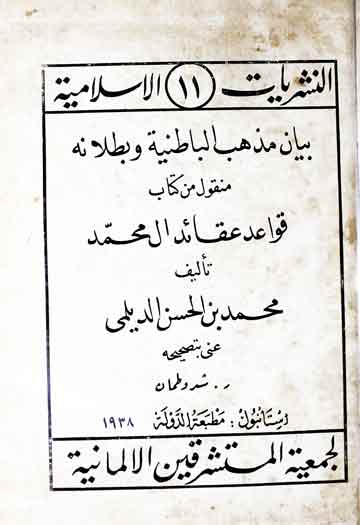 النشريات ١١ الاسلامية
بيان مذهب الباطنية وبطلانه
منقول من كتاب
قواعد عقائد ال محمد
تأليف
محمد بن الحسن الديلمى
عنى بتصحيحه
ر. شروطمان
استانبول: مطبعة الدولة ١٩٣٨
لجمعية المستشرقين الالمانية